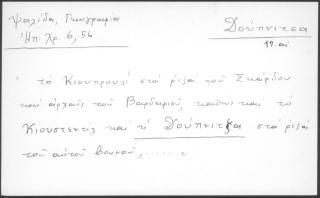 Ψαλίδα, Γεωγραφία
Ἠπ. Χρ. 6, 56
Δούπνιτσα
19. αι.
"τὸ Κιουπρουλί στὰ ριζὰ τοῦ Σκάρδου
καὶ ἀρχαῖς τοῦ Βαρδαριοῦ, καθὼς καὶ τὸ
Κιουστεντὶλ καὶ ἡ Δούπνιτζα στὰ ριζὰ
τοῦ αὐτοῦ βουνοῦ, ........,